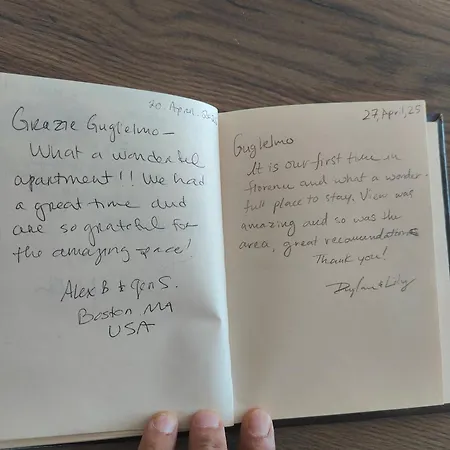 20. April.
Grazie Guglielmo -
What a wonderful
apartment!! We had
a great time and
are so grateful for
the amazing space!
Alex B & Jen S.
Boston MA
USA
27, April, 25
Guglielmo
It is our first time in
florence and what a wonder-
full place to stay. View was
amazing and so was the
area, great recomendations
Thank you!
& Lily